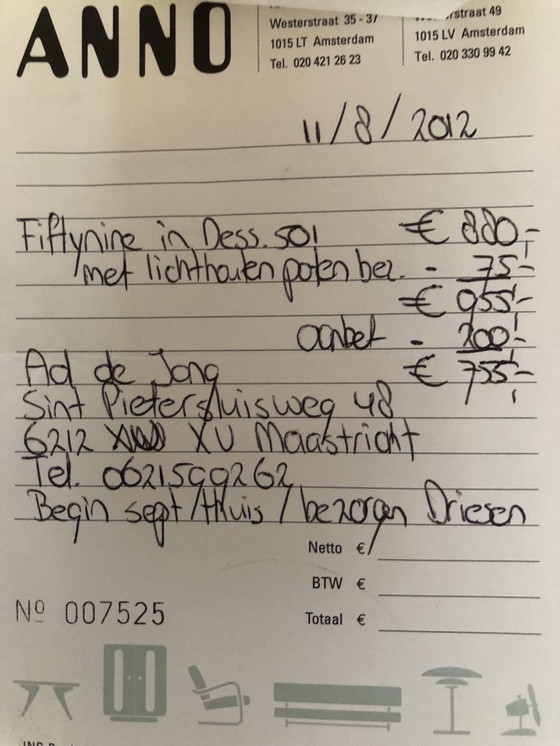 ANNO
Westerstraat 35 - 37
1015 LT Amsterdam
Tel. 020 421 26 23
rstraat 49
1015 LV Amsterdam
Tel. 020 330 99 42
11/8/2012
Fiftynine in Dess. 501 € 880,-
met lichthouten poten bez. - 75,-
€ 955,-
aanbet - 200,-
€ 755,-
Ad de Jong
Sint Pietersluisweg 48
6212 XU Maastricht
Tel. 0621599262
Begin sept / thuis / bezorgen Driesen
Netto €
BTW €
Totaal €
Nº 007525